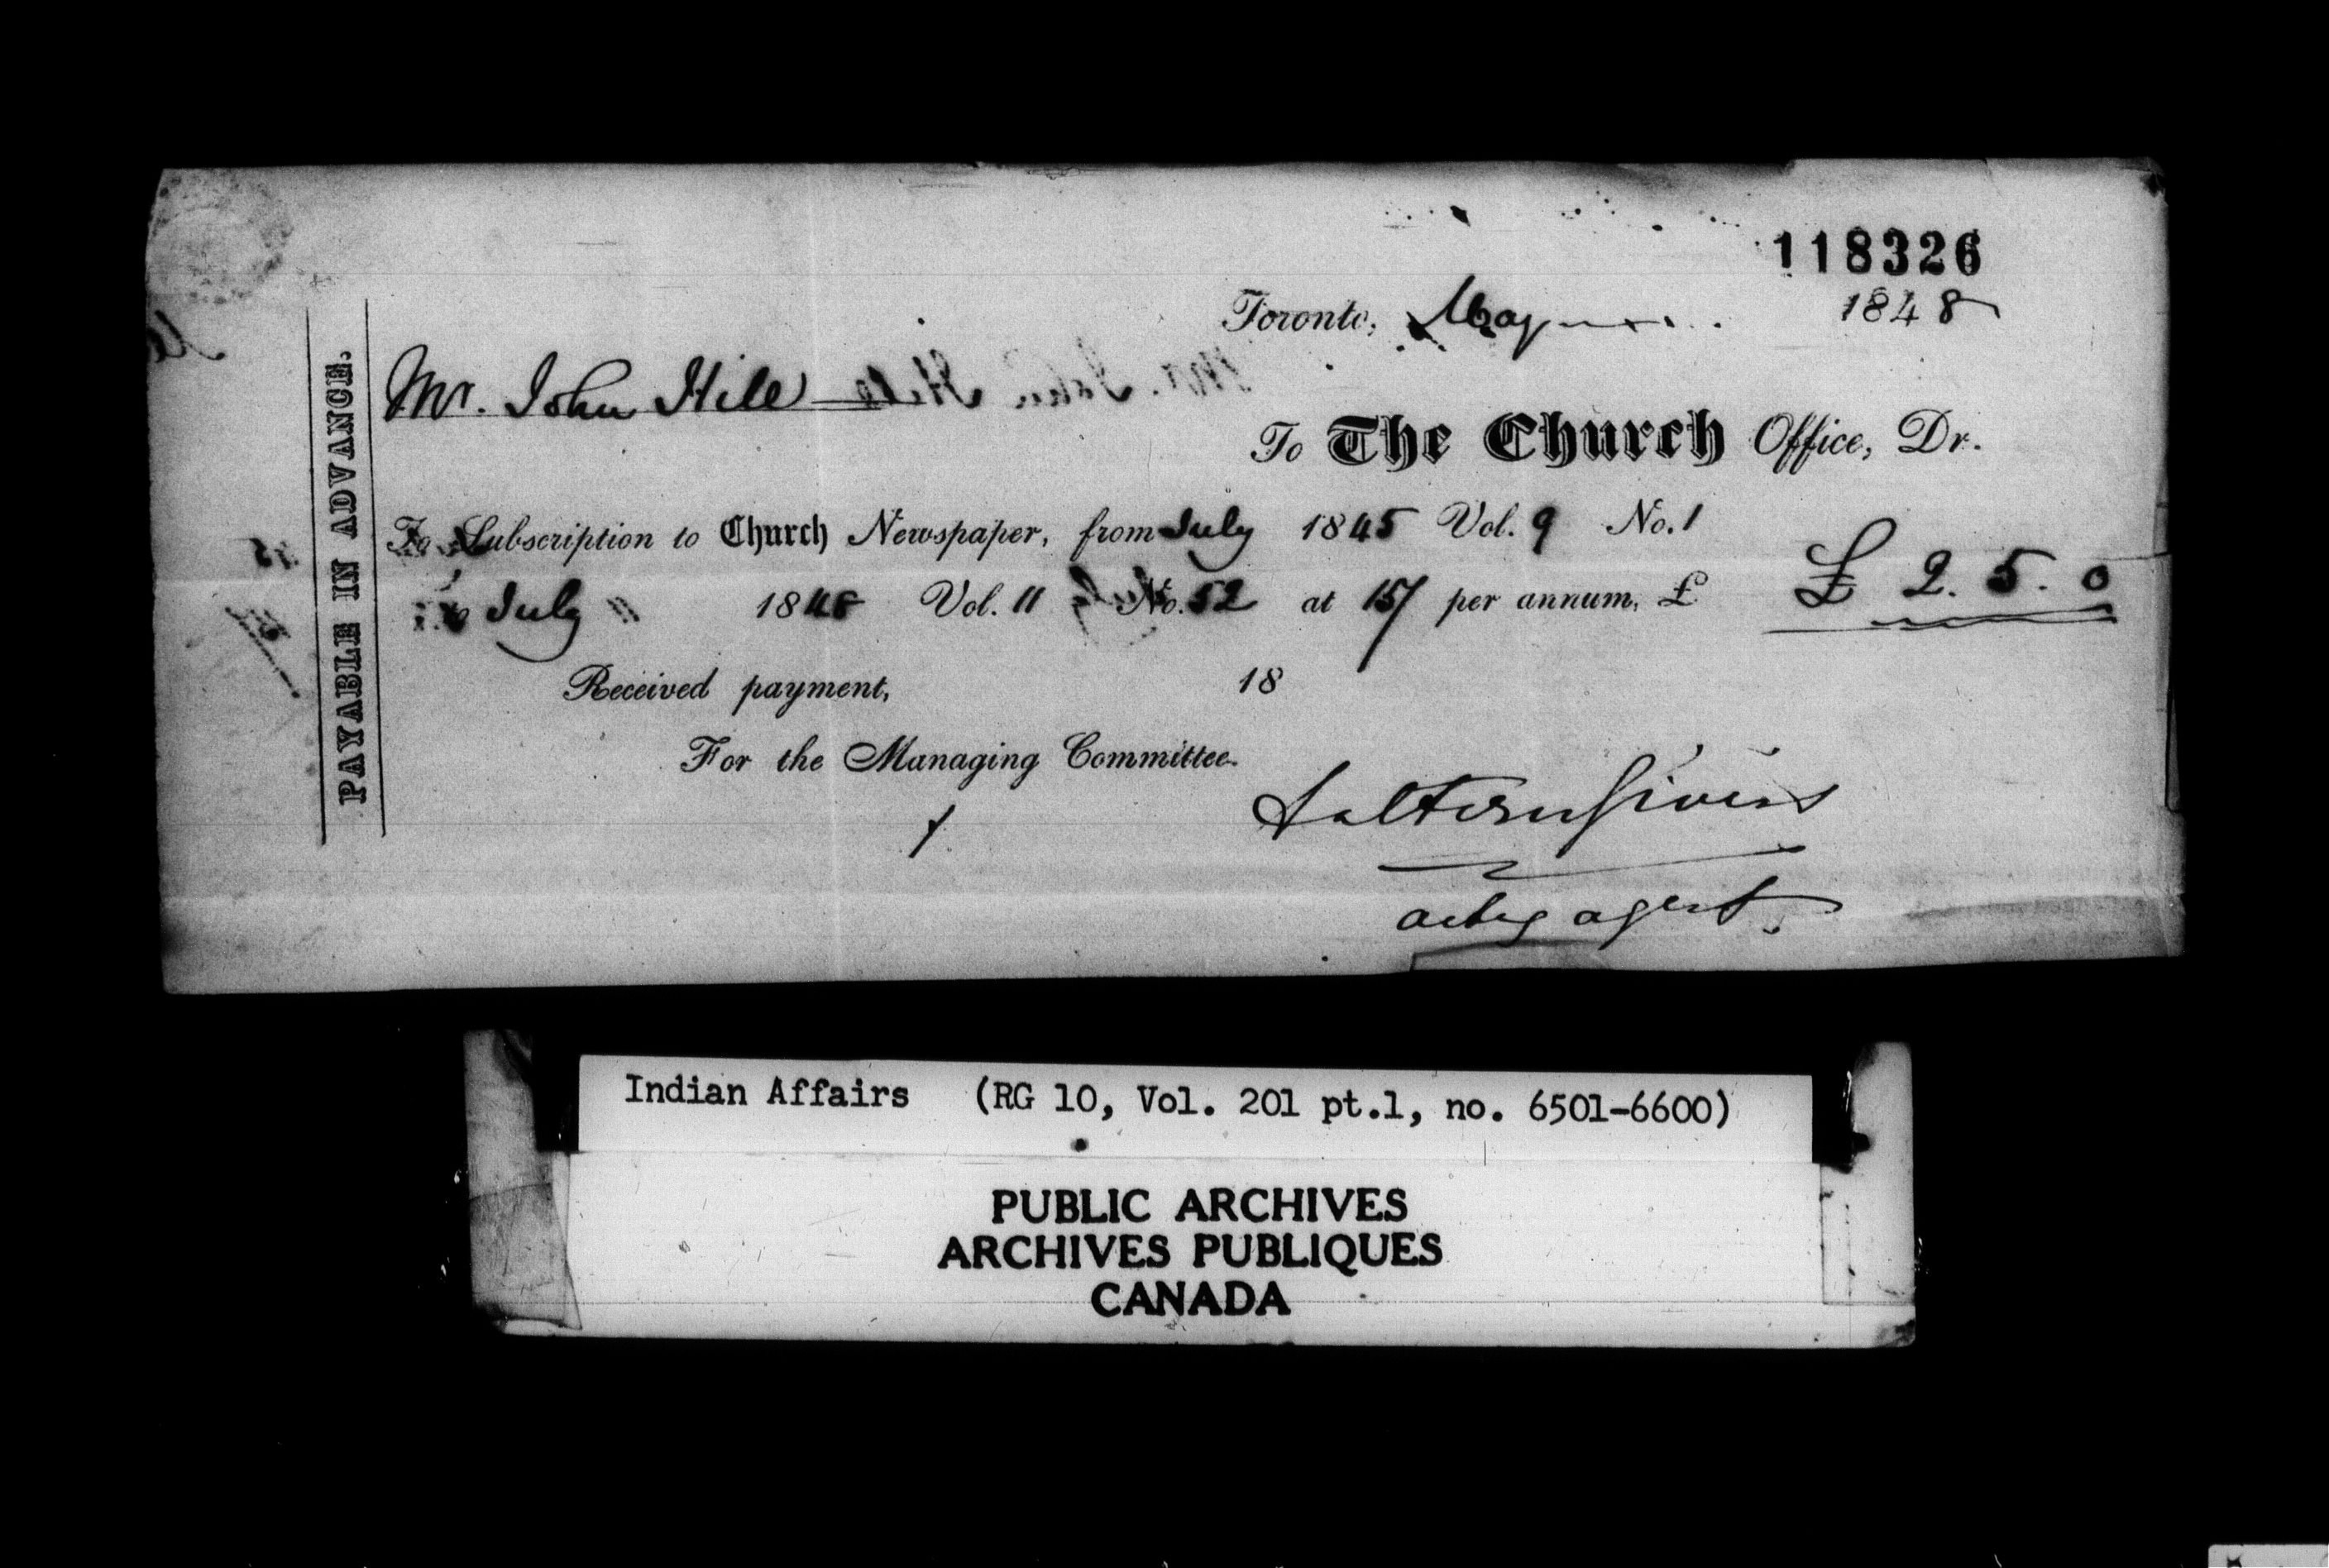 118326
Toronto, May 1848
Mr. John Hill
To The Church Office, Dr.
PAYABLE IN ADVANCE.
To Subscription to Church Newspaper, from July 1845 Vol. 9 No. 1
to July 1848 Vol. 11 No. 52 at 15/ per annum, £ £ 2. 5. 0
Received payment, 18
For the Managing Committee
Saltern Givins
acting agent.
Indian Affairs (RG 10, Vol. 201 pt.1, no. 6501-6600)
PUBLIC ARCHIVES
ARCHIVES PUBLIQUES
CANADA